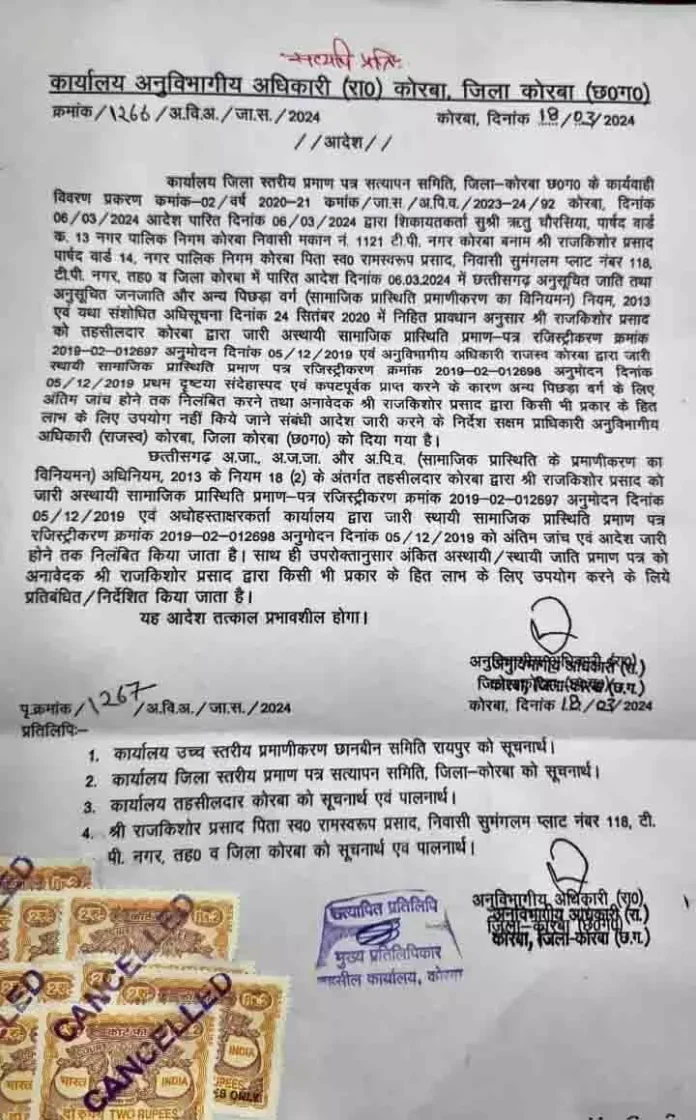 सत्यापि प्रति
कार्यालय अनुविभागीय अधिकारी (रा0) कोरबा, जिला कोरबा (छ0ग0)
क्रमांक/1266/अ.वि.अ./जा.स./2024 कोरबा, दिनांक 18/03/2024
//आदेश//
कार्यालय जिला स्तरीय प्रमाण पत्र सत्यापन समिति, जिला-कोरबा छ0ग0 के कार्यवाही
विवरण प्रकरण कमांक-02/वर्ष 2020-21 कमांक/जा.स./अ.पि.व./2023-24/92 कोरबा, दिनांक
06/03/2024 आदेश पारित दिनांक 06/03/2024 द्वारा शिकायतकर्ता सुश्री ऋतु चौरसिया, पार्षद वार्ड
क. 13 नगर पालिक निगम कोरबा निवासी मकान नं. 1121 टी.पी. नगर कोरबा बनाम श्री राजकिशोर प्रसाद
पार्षद वार्ड 14, नगर पालिक निगम कोरबा पिता स्व0 रामस्वरूप प्रसाद, निवासी सुमंगलम प्लाट नंबर 118,
टी.पी. नगर, तह0 व जिला कोरबा में पारित आदेश दिनांक 06.03.2024 में छत्तीसगढ़ अनुसूचित जाति तथा
अनुसूचित जनजाति और अन्य पिछड़ा वर्ग (सामाजिक प्रास्थिति प्रमाणीकरण का विनियमन) नियम, 2013
एवं यथा संशोधित अधिसूचना दिनांक 24 सितंबर 2020 में निहित प्रावधान अनुसार श्री राजकिशोर प्रसाद
को तहसीलदार कोरबा द्वारा जारी अस्थायी सामाजिक प्रास्थिति प्रमाण-पत्र रजिस्ट्रीकरण कमांक
2019-02-012697 अनुमोदन दिनांक 05/12/2019 एवं अनुविभागीय अधिकारी राजस्व कोरबा द्वारा जारी
स्थायी सामाजिक प्रास्थिति प्रमाण पत्र रजिस्ट्रीकरण कमांक 2019-02-012698 अनुमोदन दिनांक
05/12/2019 प्रथम दृष्टया संदेहास्पद एवं कपटपूर्वक प्राप्त करने के कारण अन्य पिछड़ा वर्ग के लिए
अंतिम जांच होने तक निलंबित करने तथा अनावेदक श्री राजकिशोर प्रसाद द्वारा किसी भी प्रकार के हित
लाभ के लिए उपयोग नहीं किये जाने संबंधी आदेश जारी करने के निर्देश सक्षम प्राधिकारी अनुविभागीय
अधिकारी (राजस्व) कोरबा, जिला कोरबा (छ0ग0) को दिया गया है।
छत्तीसगढ़ अ.जा., अ.ज.जा. और अ.पि.व. (सामाजिक प्रास्थिति के प्रमाणीकरण का
विनियमन) अधिनियम, 2013 के नियम 18 (2) के अंतर्गत तहसीलदार कोरबा द्वारा श्री राजकिशोर प्रसाद को
जारी अस्थायी सामाजिक प्रास्थिति प्रमाण-पत्र रजिस्ट्रीकरण क्रमांक 2019-02-012697 अनुमोदन दिनांक
05/12/2019 एवं अधोहस्ताक्षरकर्ता कार्यालय द्वारा जारी स्थायी सामाजिक प्रास्थिति प्रमाण पत्र
रजिस्ट्रीकरण क्रमांक 2019-02-012698 अनुमोदन दिनांक 05/12/2019 को अंतिम जांच एवं आदेश जारी
होने तक निलंबित किया जाता है। साथ ही उपरोक्तानुसार अंकित अस्थायी/स्थायी जाति प्रमाण पत्र को
अनावेदक श्री राजकिशोर प्रसाद द्वारा किसी भी प्रकार के हित लाभ के लिए उपयोग करने के लिये
प्रतिबंधित/निर्देशित किया जाता है।
यह आदेश तत्काल प्रभावशील होगा।
अनुविभागीय अधिकारी (रा.)
कोरबा, जिला-कोरबा (छ.ग.)
पृ.क्रमांक/1267/अ.वि.अ./जा.स./2024 कोरबा, दिनांक 18/03/2024
प्रतिलिपिः-
1. कार्यालय उच्च स्तरीय प्रमाणीकरण छानबीन समिति रायपुर को सूचनार्थ।
2. कार्यालय जिला स्तरीय प्रमाण पत्र सत्यापन समिति, जिला-कोरबा को सूचनार्थ।
3. कार्यालय तहसीलदार कोरबा को सूचनार्थ एवं पालनार्थ।
4. श्री राजकिशोर प्रसाद पिता स्व0 रामस्वरूप प्रसाद, निवासी सुमंगलम प्लाट नंबर 118, टी.
पी. नगर, तह0 व जिला कोरबा को सूचनार्थ एवं पालनार्थ।
अनुविभागीय अधिकारी (रा0)
अनुविभागीय अधिकारी (रा.)
जिला-कोरबा (छ0ग0)
कोरबा, जिला-कोरबा (छ.ग.)
सत्यापित प्रतिलिपि
मुख्य प्रतिलिपिकार
तहसील कार्यालय, कोरबा
CANCELLED
CANCELLED
कोर्ट फी
भारत INDIA
दो रुपये TWO RUPEES
INDIA